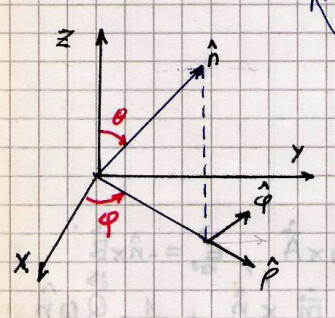 Z
n̂
θ
Y
φ
φ̂
X
ρ̂